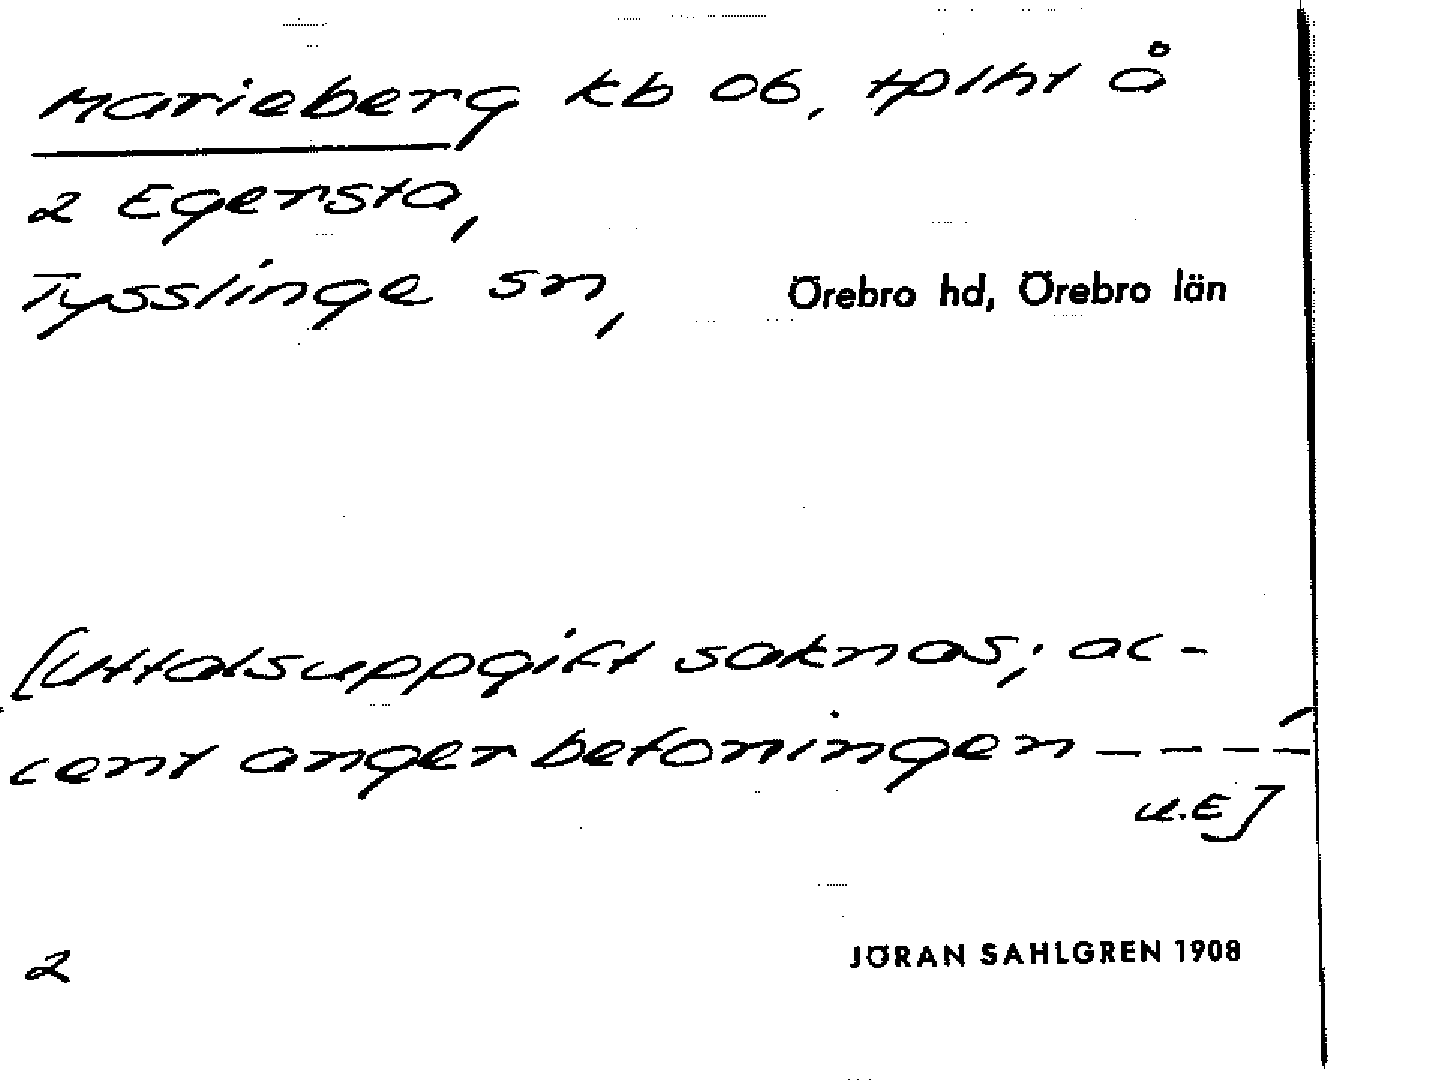 Marieberg kb 06, tplht å
2 Egersta,
Tysslinge sn, Örebro hd, Örebro län
[Uttalsuppgift saknas; ac-
cent anger betoningen – – – –́
u.E]
2 JÖRAN SAHLGREN 1908